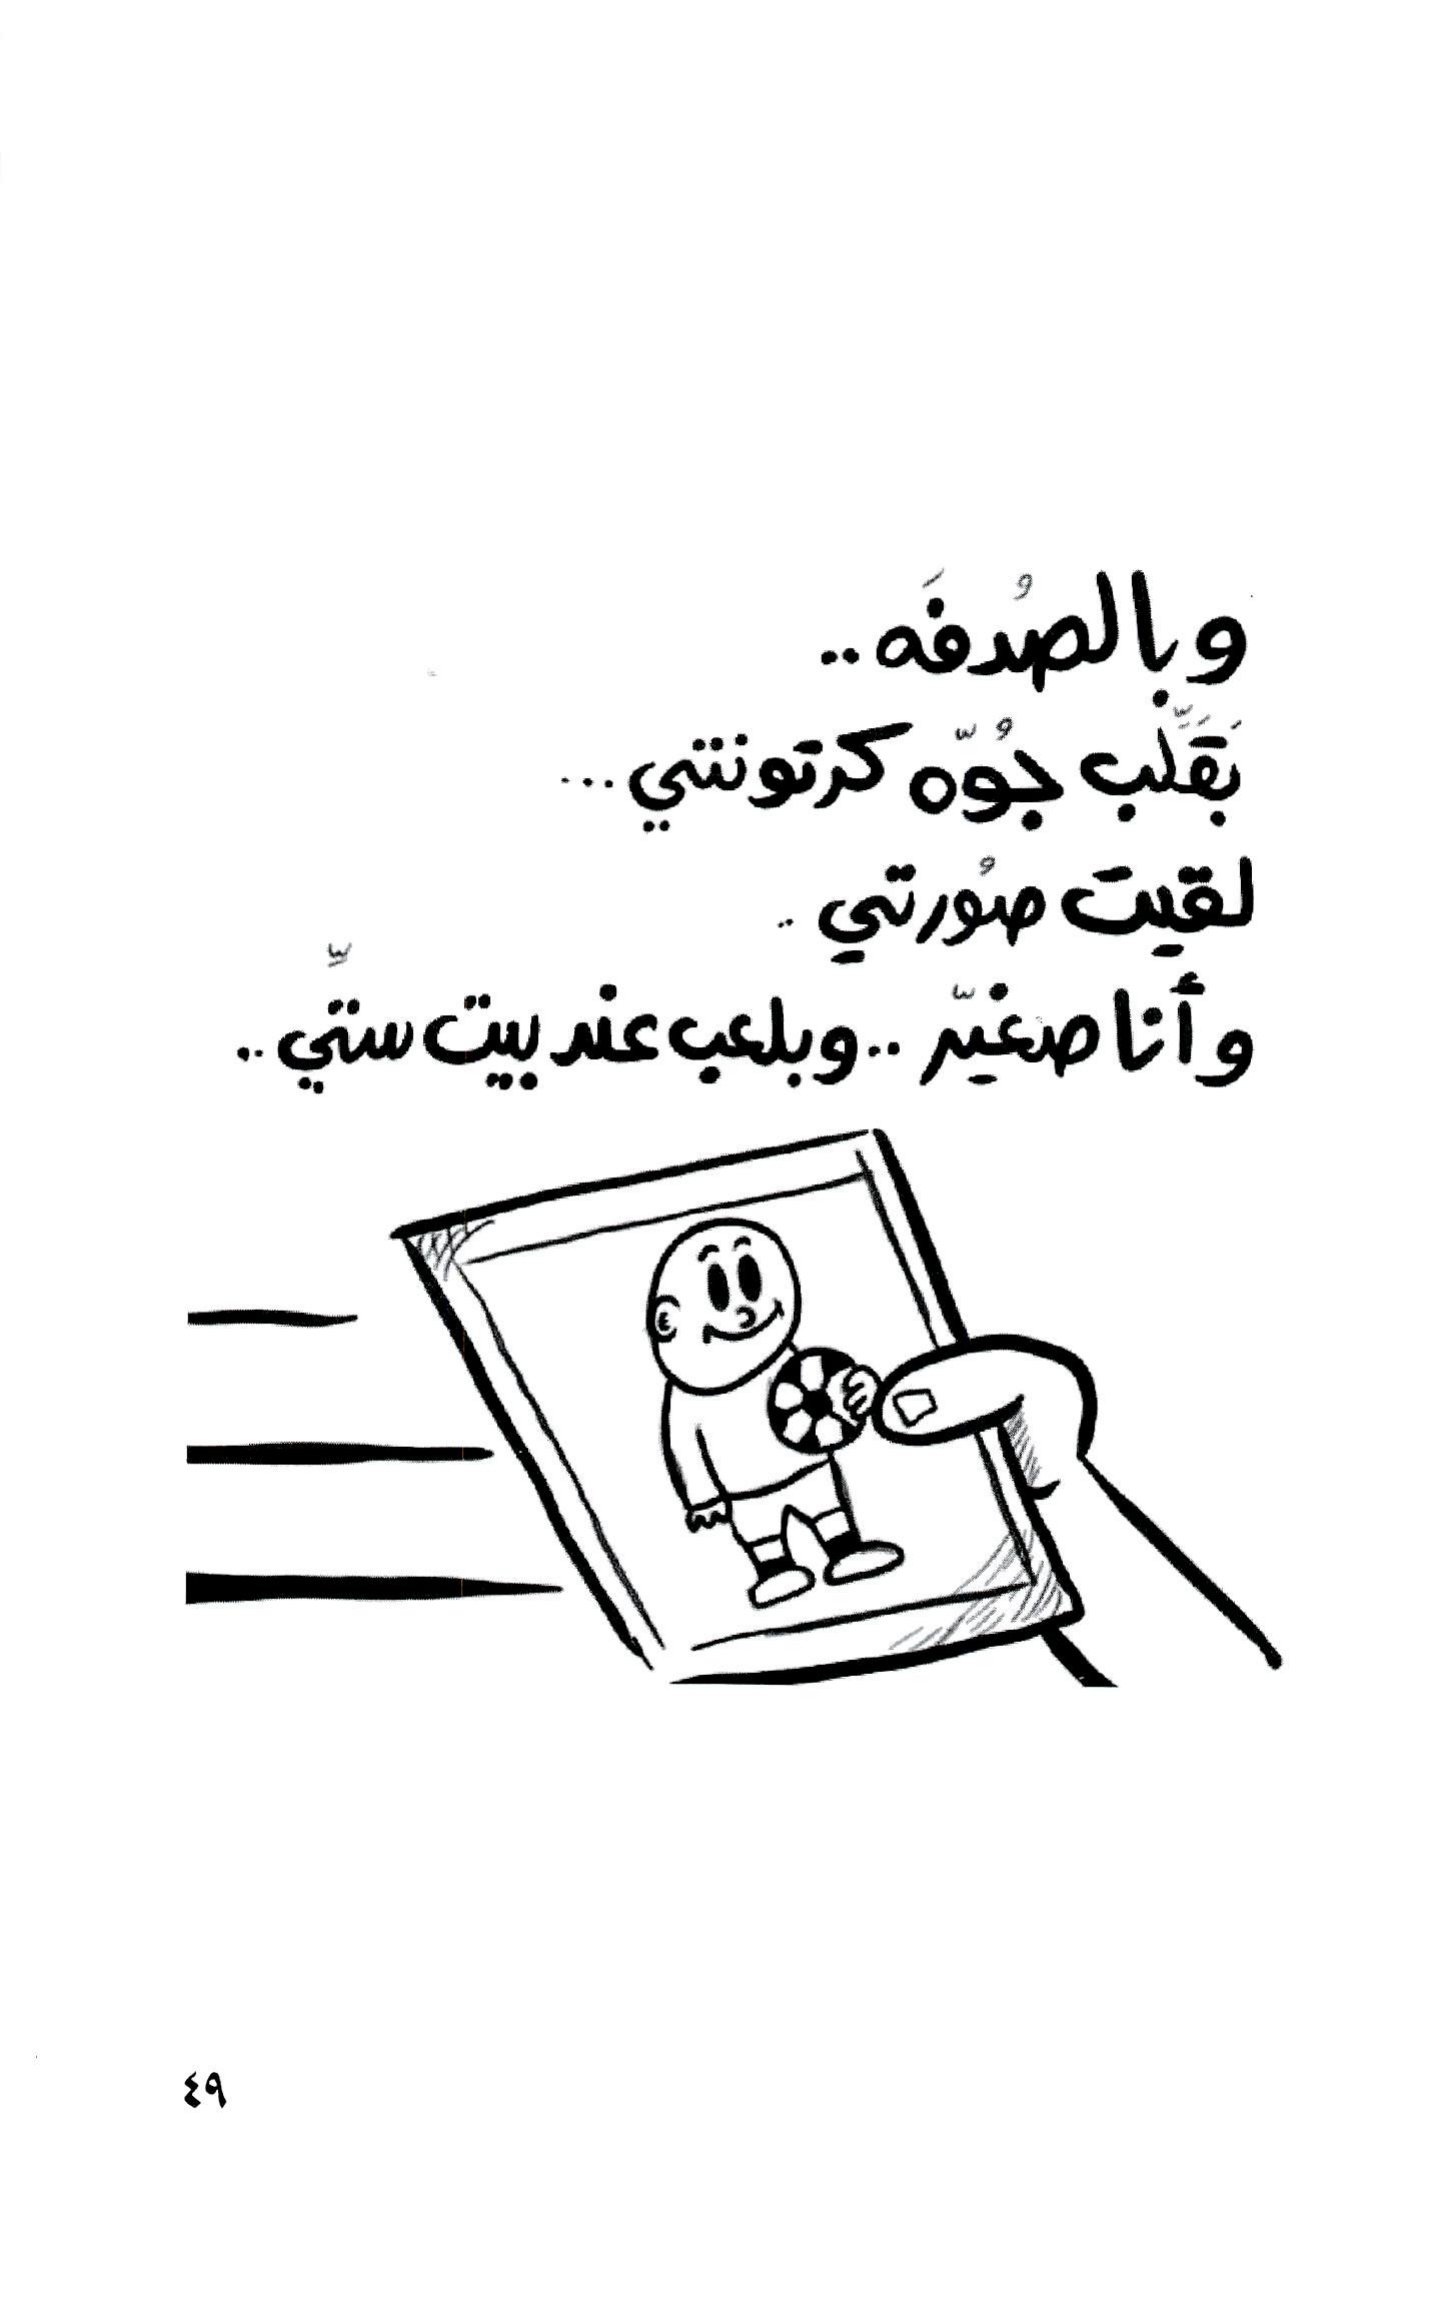 وبالصُدفَه ..
بَقَلِّب جُوّه كرتونتي ...
لقيت صُورتي ..
وأنا صغيّر .. وبلعب عند بيت ستّي ..
٤٩